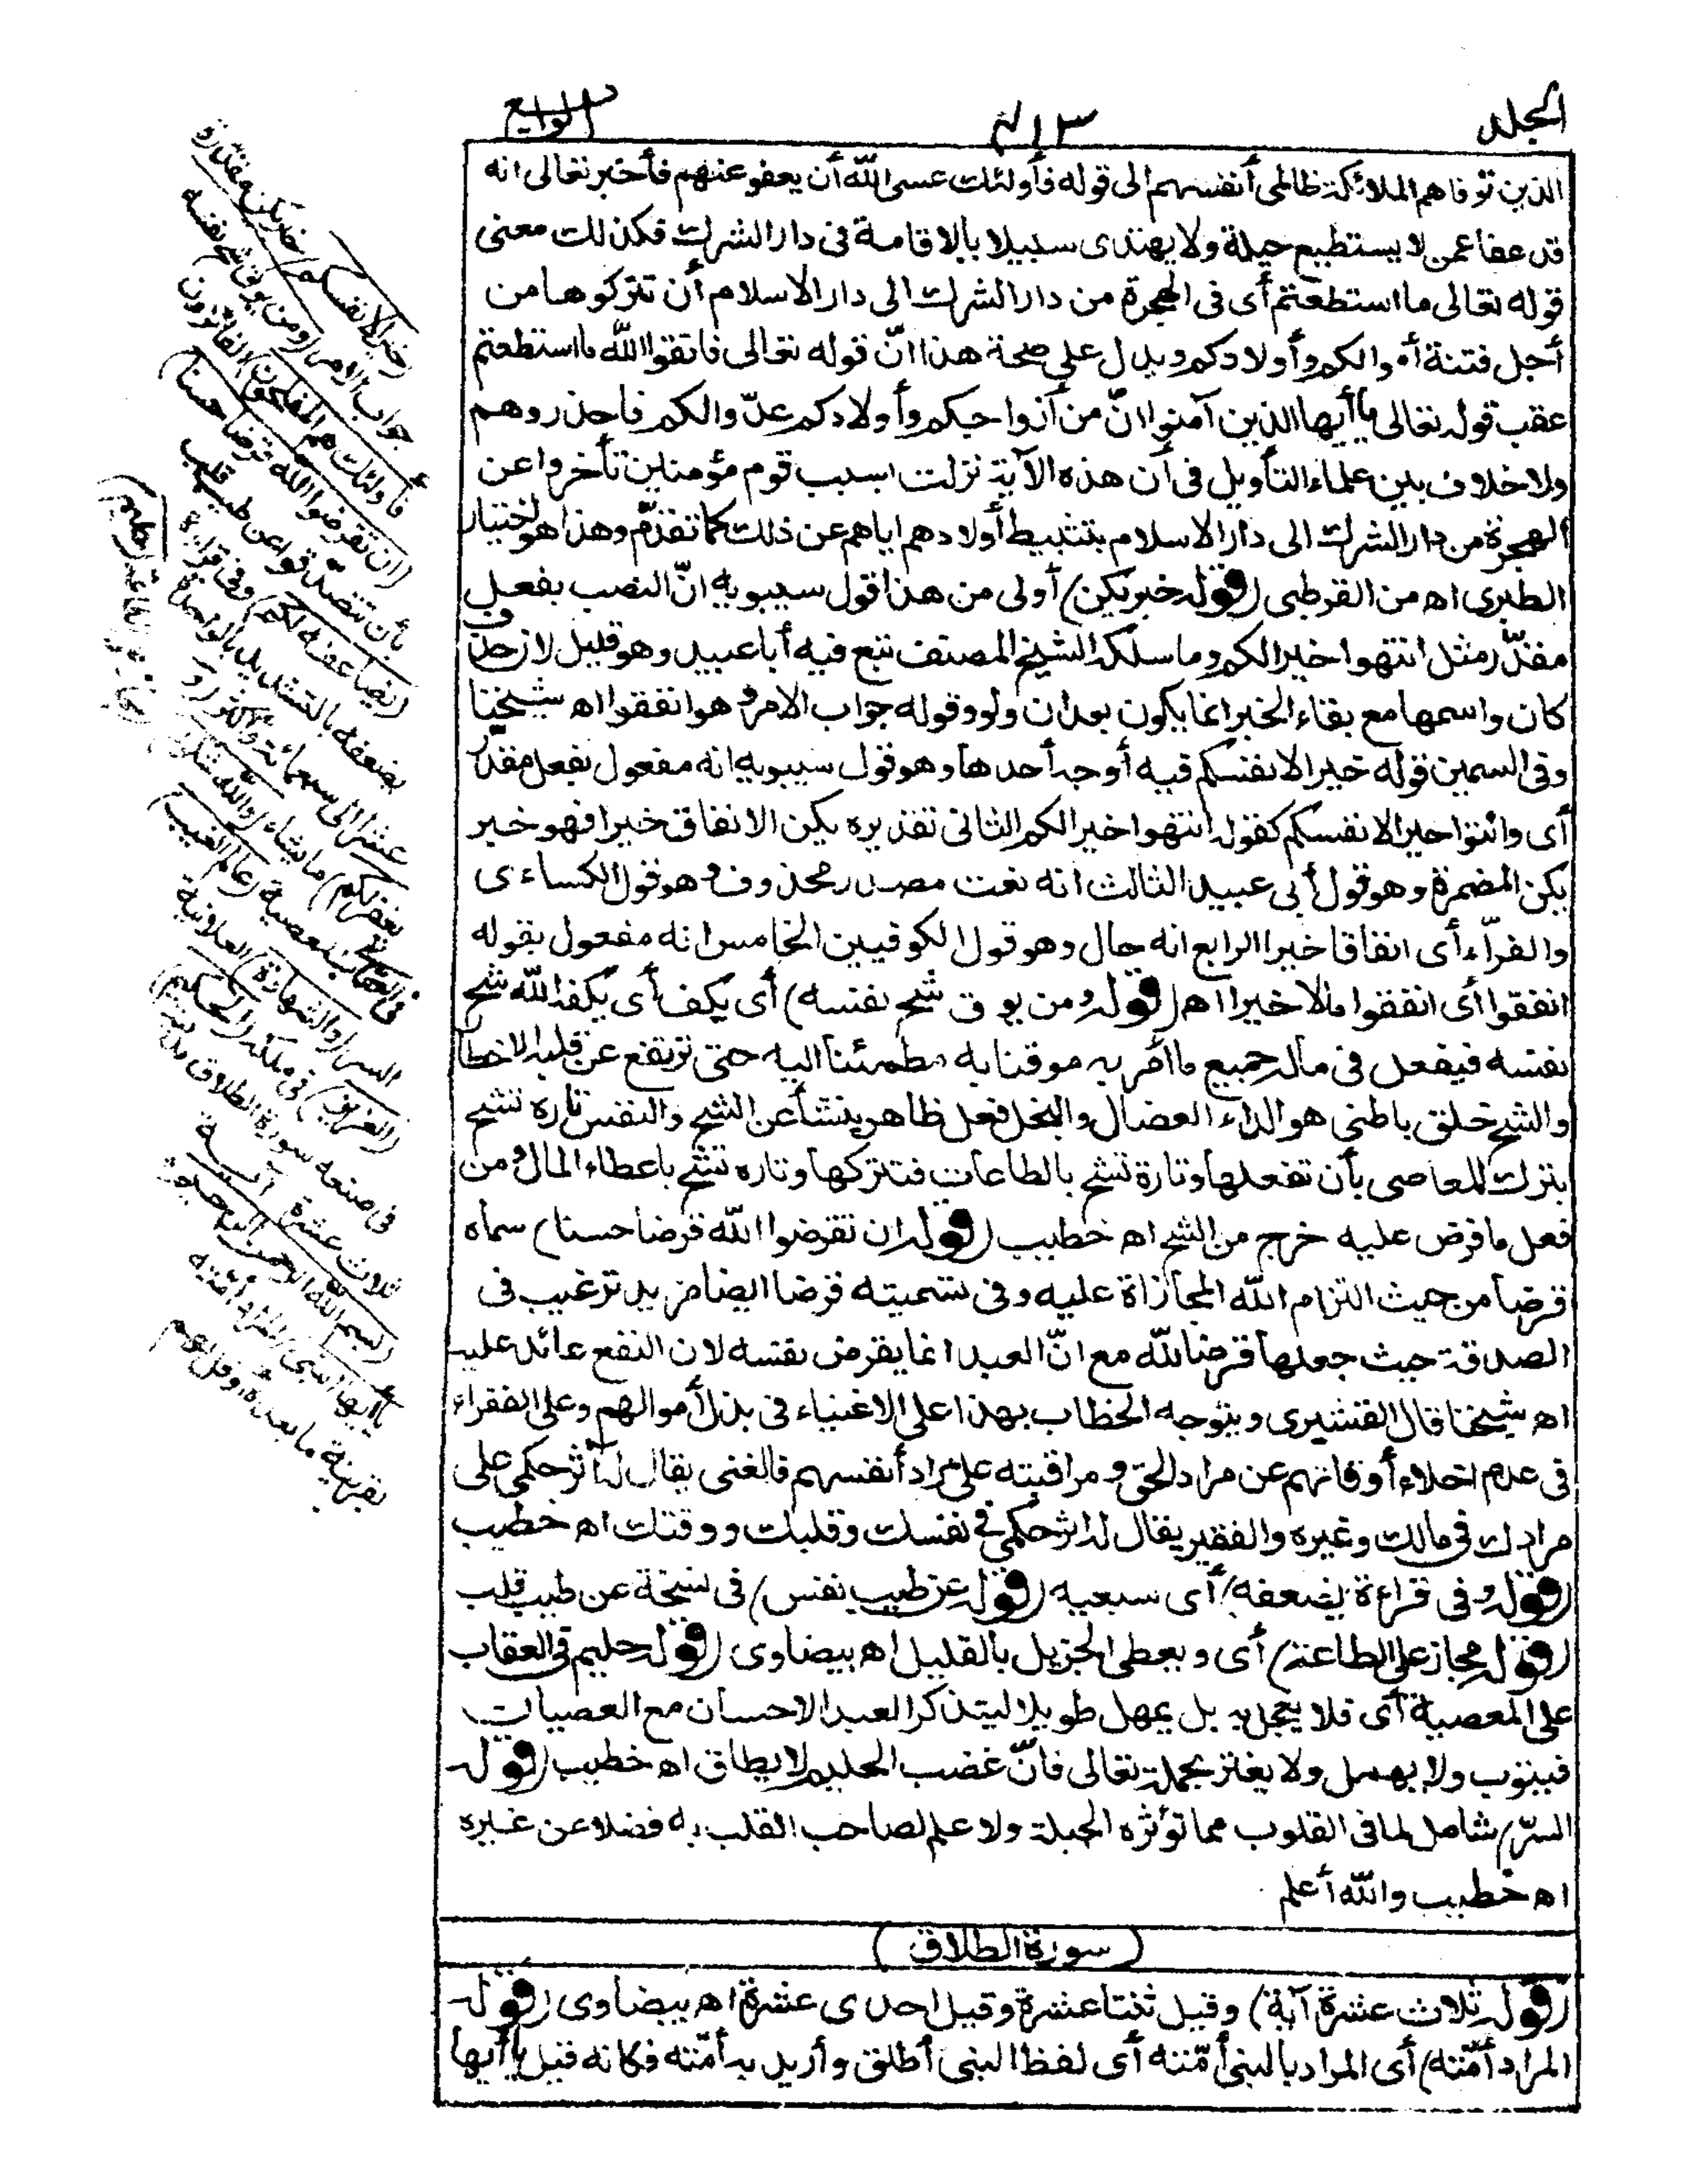 الجلد
الرابع
الذين توفاهم الملائكة ظالمى أنفسهم الى قوله فأولئك عسى الله أن يعفو عنهم فأخبر تعالى انه
قد عفا عمن لا يستطيع حيلة ولا يهتدى سبيلا بالاقامة فى دار الشرك فكذلك معنى
قوله تعالى ما استطعتم أى فى الهجرة من دار الشرك الى دار الاسلام أن تتركوها من
أجل فتنة أموالكم وأولادكم ويدل على صحة هذا انّ قوله تعالى فاتقوا الله ما استطعتم
عقب قوله تعالى يا أيها الذين آمنوا انّ من أزواجكم وأولادكم عدّوا لكم فاحذروهم
ولا خلاف بين علماء التأويل فى أن هذه الآية نزلت بسبب قوم مؤمنين تأخروا عن
الهجرة من دار الشرك الى دار الاسلام بتثبيط أولادهم اياهم عن ذلك كما تقدّم وهذا هو اختيار
الطبرى اه من القرطبى (قوله خبر يكن) أولى من هذا قول سيبويه انّ النصب بفعل
مقدّر مثل انتهوا خيرا لكم وما سلكه الشيخ المصنف تبع فيه أبا عبيد وهو قليل لان حذف
كان واسمها مع بقاء الخبر انما يكون بعد ان ولو وقوله جواب الامر وهو انفقوا اه شيخنا
وفى السمين قوله خيرا لانفسكم فيه أوجه أحدها وهو قول سيبويه انه مفعول بفعل مقدّر
أى وائتوا خيرا لانفسكم كقوله انتهوا خيرا لكم الثانى تقديره يكن الانفاق خيرا فهو خبر
يكن المضمرة وهو قول أبى عبيد الثالث انه نعت مصدر محذوف وهو قول الكساءى
والفرّاء أى انفاقا خيرا الرابع انه حال وهو قول الكوفيين الخامس انه مفعول بقوله
انفقوا أى انفقوا مالا خيرا اه (قوله ومن يوق شح نفسه) أى يكف أى يكفه الله شح
نفسه فيفعل فى ماله جميع ما أمر به موقنا به مطمئنا اليه حتى ترتفع عن قلبه الاخطار
والشح خلق باطنى هو الداء العضال والبخل فعل ظاهر ينشأ عن الشح والنفس تارة تشح
بترك المعاصى بأن تفعلها وتارة تشح بالطاعات فتتركها وتارة تشح باعطاء المال ومن
فعل ما فرض عليه خرج من الشح اه خطيب (قوله ان تقرضوا الله قرضا حسنا) سماه
قرضا من حيث التزام الله المجازاة عليه وفى تسميته قرضا ايضا مزيد ترغيب فى
الصدقة حيث جعلها قرضا لله مع انّ العبد انما يقرض نفسه لان النفع عائد عليه
اه شيخنا قال القشيرى ويتوجه الخطاب بهذا على الاغنياء فى بذل أموالهم وعلى الفقراء
فى عدم اخلاء أوقاتهم عن مراد الحق ومراقبته على مراد أنفسهم فالغنى يقال له آثر حكمى على
مرادك فى مالك وغيره والفقير يقال له اثر حكمى فى نفسك وقلبك ووقتك اه خطيب
(قوله وفى قراءة يضعفه) أى سبعية (قوله عن طيب نفس) فى نسخة عن طيب قلب
(قوله مجاز على الطاعة) أى ويعطى الجزيل بالقليل اه بيضاوى (قوله حليم فى العقاب
على المعصية أى فلا يعجل به بل يمهل طويلا ليتذكر العبد الاحسان مع العصيان
فيتوب ولا يهمل ولا يغتر بحمله تعالى فانّ غضب الحليم لا يطاق اه خطيب (قوله
السرّ) شامل لما فى القلوب مما تؤثره الجبلة ولا علم لصاحب القلب به فضلا عن غيره
اه خطيب والله أعلم
(سورة الطلاق)
(قوله ثلاث عشرة آية) وقيل ثنتا عشرة وقيل احدى عشرة اه بيضاوى (قوله
المراد أمّته) أى المراد بالنبى أمّته أى لفظ النبى أطلق وأريد به أمّته فكانه قيل يا أيها
(خيرا لانفسكم) خبر يكن مقدّرة
جواب الامر (ومن يوق شح نفسه
فأولئك هم المفلحون) الفائزون
(ان تقرضوا الله قرضا حسنا)
بأن تتصدّقوا عن طيب قلب
(يضاعفه لكم) وفى قراءة
يضعفه بالتشديد بالواحدة
عشرا الى سبعمائة وأكثر (و
يغفر لكم) ما يشاء (والله شكور)
مجاز على الطاعة (حليم)
فى العقاب على المعصية (عالم الغيب)
السر (والشهادة) العلانية
(العزيز) فى ملكه (الحكيم)
فى صنعه سورة الطلاق مدنية
ثلاث عشرة آية
(بسم الله الرحمن الرحيم
يا أيها النبى) المراد أمّته
بقرينة ما بعده أو قل لهم